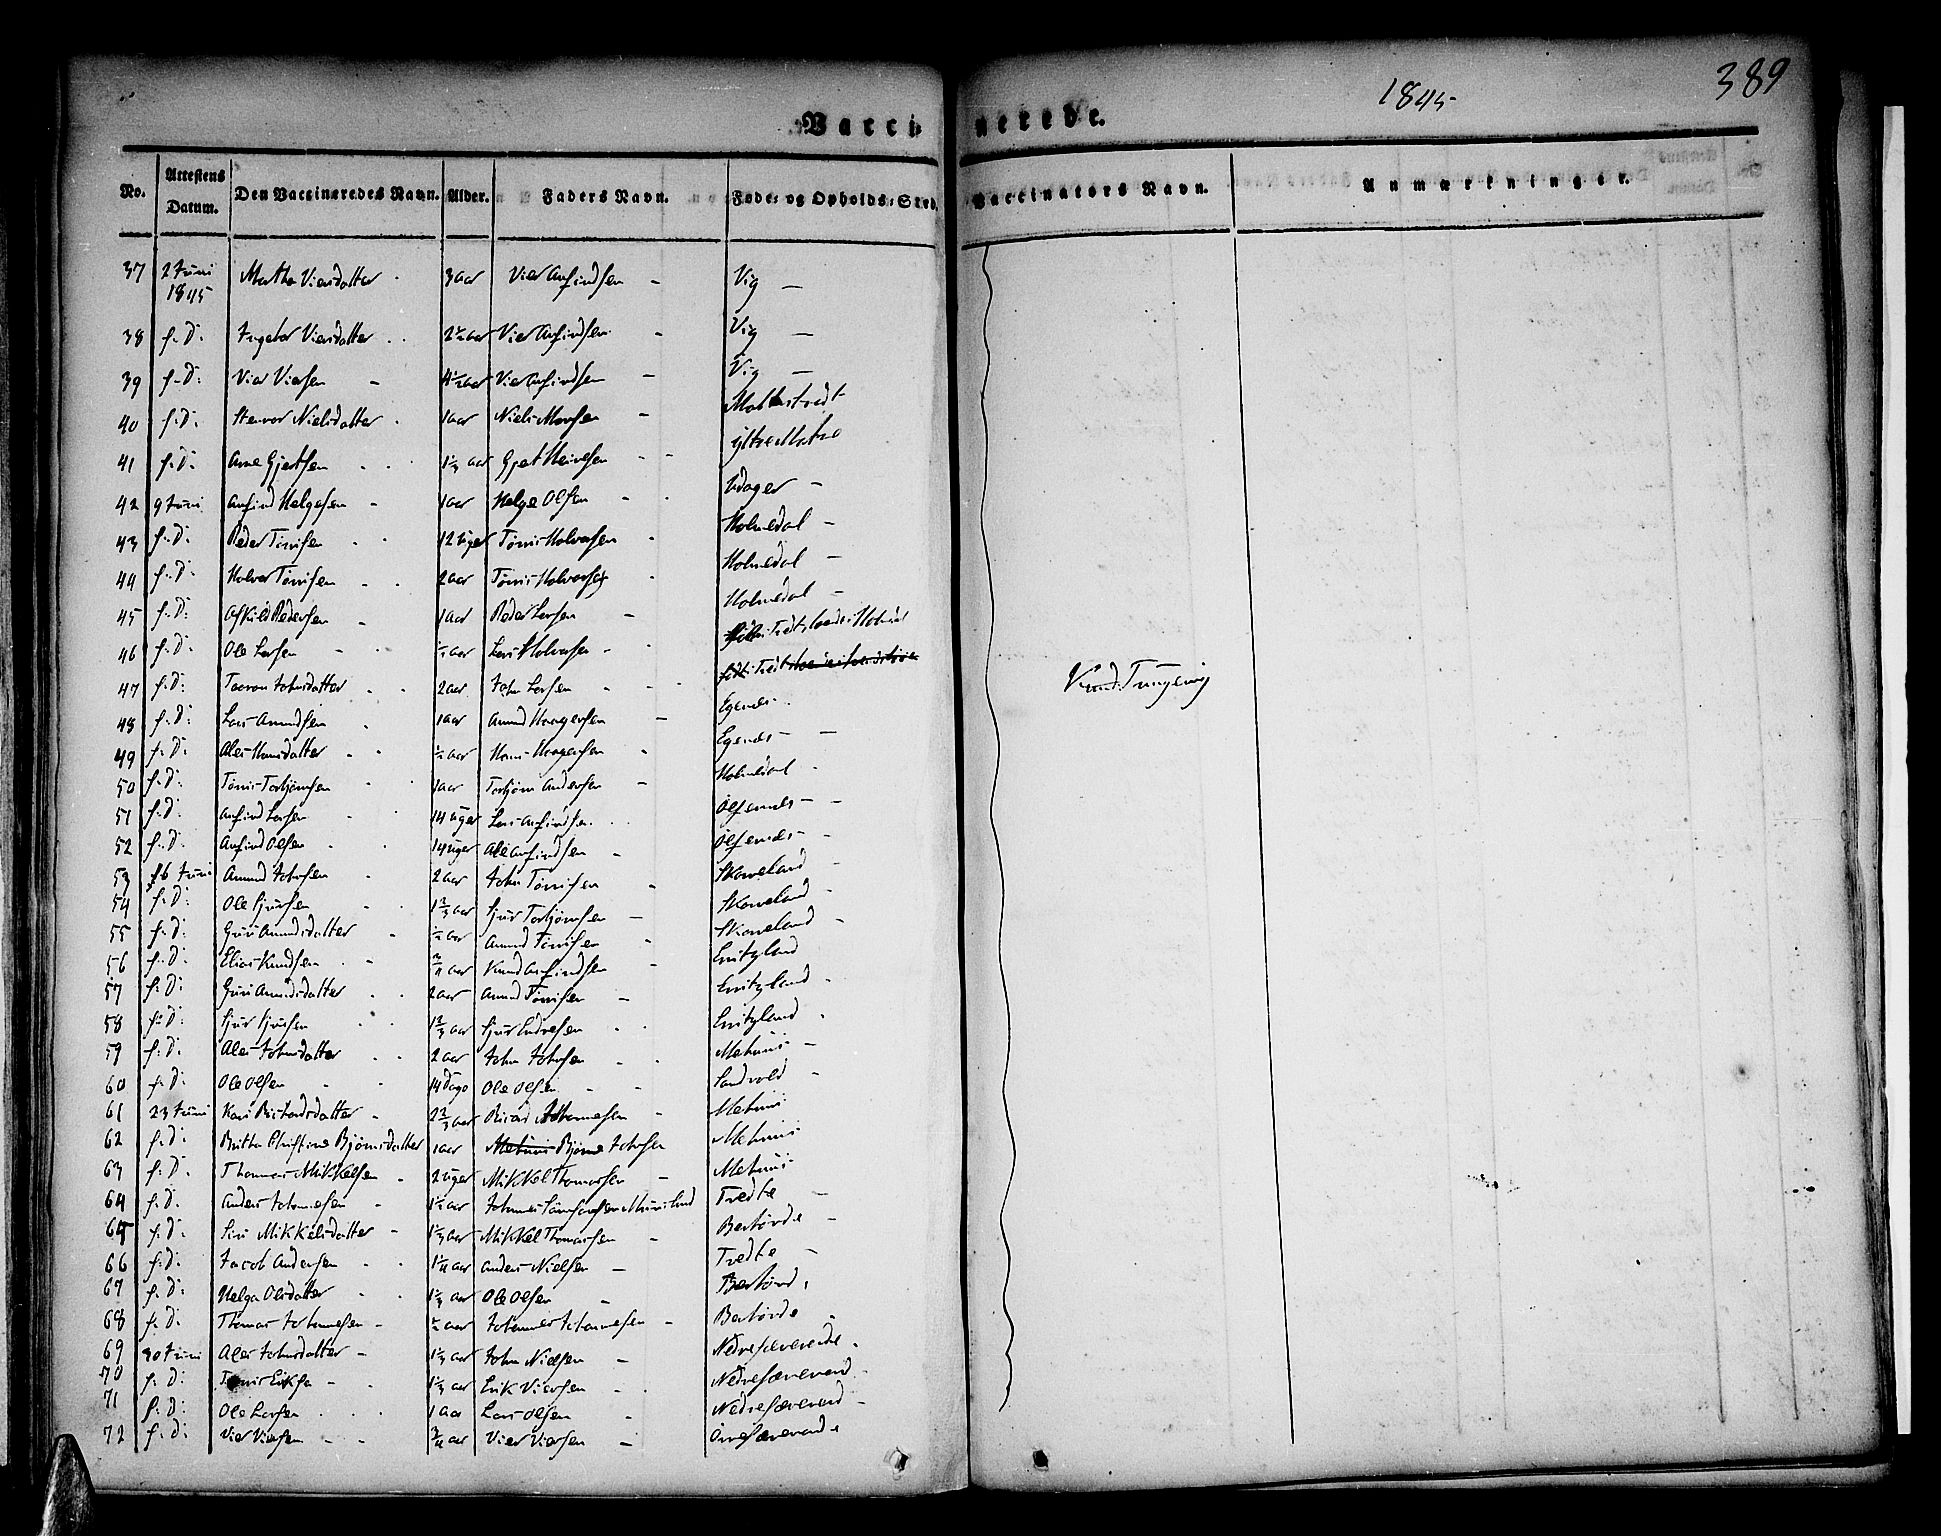 389
1845
Vaccinerede.
No. Attestens Datum. Den Vaccineredes Navn. Alder. Faders Navn. Føde- og Opholds-Sted. Vaccinators Navn. Anmærkninger.
37 2 Juni 1845 Martha Viersdatter 3 aar Vier Anfindsen Vig
38 s. D. Ingebor Viersdatter 2 1/2 aar Vier Anfindsen Vig
39 s. D. Vier Viersen 4 1/2 aar Vier Anfindsen Vig
40 s. D. Nielsdatter 1 aar Niels
41 s. D. Arne Gjertsen 1 1/3 aar Gjert Ytre Matre
42 9 Juni Anfind Helgesen 1 aar Helge Olsen
43 s. D. Peder Tønisen 12 Uger Tønis Holversen Holmedal
44 s. D. Holver Tønisen 2 aar Tønis Holversen Holmedal
45 s. D. Askild Pedersen 1 aar Peder Larsen Holmedal
46 s. D. Ole Larsen 1/2 aar Lars Holversen
47 s. D. Johnsdatter 2 aar John Larsen
48 s. D. Lars Amundsen 1 aar Amund Haagensen Egenes
49 s. D. Ales Hansdatter 1/2 aar Hans Haagensen Egenes
50 s. D. Tønis Torbjørnsen 1 aar Torbjørn Andersen Holmedal
51 s. D. Anfind Larsen 14 Uger Lars Anfindsen Ølfernes
52 s. D. Anfind Olsen 14 Uger Ole Anfindsen Ølfernes
53 16 Juni Amund Johnsen 2 aar John Tønisen Skoneland
54 s. D. Ole Sjursen 1 2/3 aar Sjur Torbjørnsen Skoneland
55 s. D. Guri Amundsdatter 1/2 aar Amund Tønisen Skoneland
56 s. D. Elias Knudsen 3/4 aar Knud Anfindsen
57 s. D. Guri Amundsdatter 2 aar Amund Tønisen
58 s. D. Sjur Sjursen 1 2/3 aar Sjur Endresen
59 s. D. Ales Johnsdatter 2 aar John Johnsen Mehuus
60 s. D. Ole Olsen 14 Dage Ole Olsen Sandvold
61 23 Juni Kari Richardsdatter 2 2/3 aar Ricard Johannesen Mehuus
62 s. D. Britha Christine Bjørnsdatter 1 aar Bjørne Johnsen Mehuus
63 s. D. Thomas Mikkelsen 2 Uger Mikkel Thomassen Mehuus
64 s. D. Anders Johannesen 1 1/2 aar Johannes Tredte
65 s. D. Siri Mikkelsdatter 1 1/3 aar Mikkel Thomassen Bertørde
66 s. D. Jacob Andersen 1 1/4 aar Anders Nielsen Tredte
67 s. D. Helga Olsdatter 1 1/3 aar Ole Olsen Bertørd
68 s. D. Thomas Johannesen 1/2 aar Johannes Johannesen Bertørde
69 30 Juni Ales Johnsdatter 1 1/3 aar John Nielsen Nedresæverende
70 s. D. Tønis Eriksen 1 1/3 aar Erik Viersen Nedresæverend
71 s. D. Ole Larsen 1 aar Lars Olsen Nedresæverend
72 s. D. Vier Viersen 3/4 aar Vier Viersen Øvresæverende